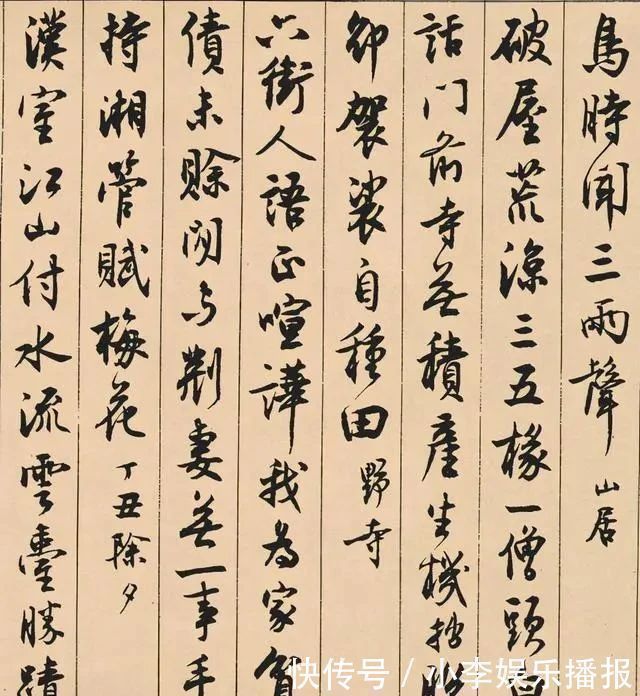 鳥時聞三兩聲 山居
破屋荒涼三五椽一僧頭
話門前寺無積產生機
卻袈裟自種田 野寺
六街人語正喧譁我為家貧
債未賒閒與荆妻無一事手
持湘管賦梅花 丁丑除夕
漢室江山付水流雲臺勝蹟
快传号／小李娱乐播报